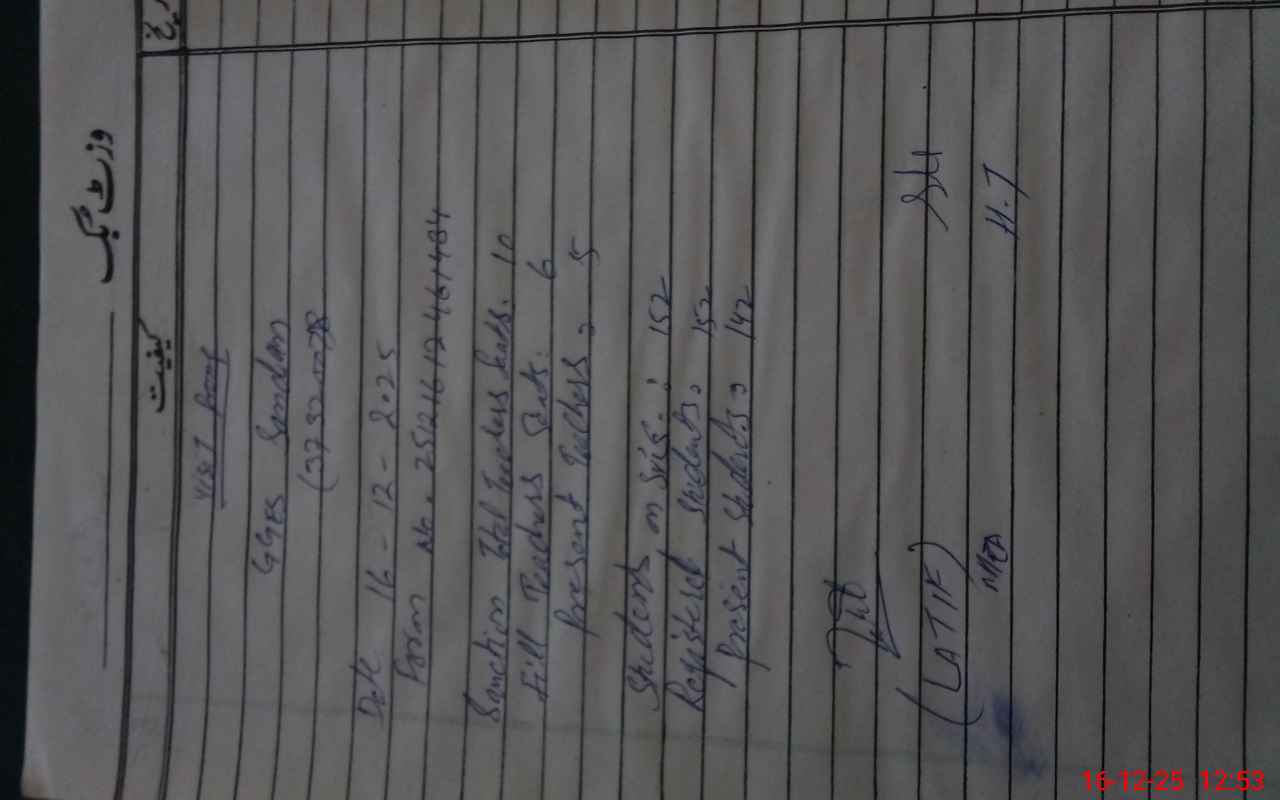 وزٹ بُک
کیفیت
Visit Proof
GGES Sandan
Date 16-12-2025
Form No. 25121612461484
Sanction Total Teachers Seats. 10
Fill Teachers Seats. 6
Present Teachers = 5
Students on SIS.: 152
Registered Students = 152
Present Students = 142
(LATIF)
MEA
H.T
16-12-25 12:53